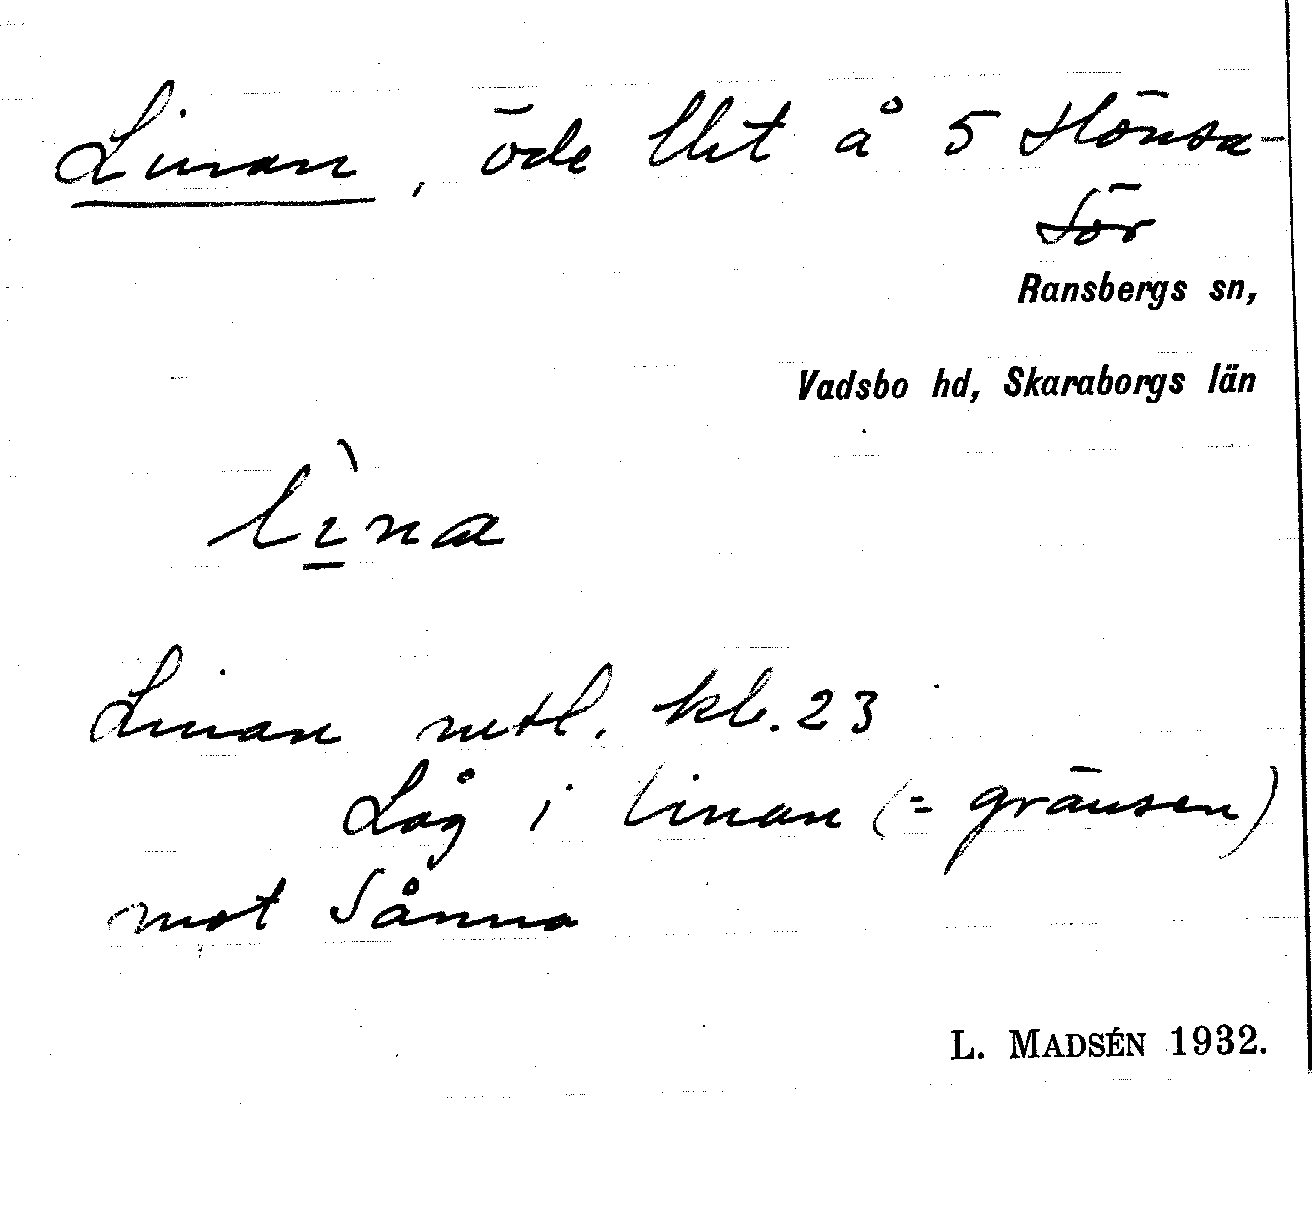 Linan, öde lht å 5 Hönsa-
sör
Ransbergs sn,
Vadsbo hd, Skaraborgs län
lı̀na
Linan mtl. kl. 23
Låg i linan (= gränsen)
mot Sånna
L. MADSÉN 1932.